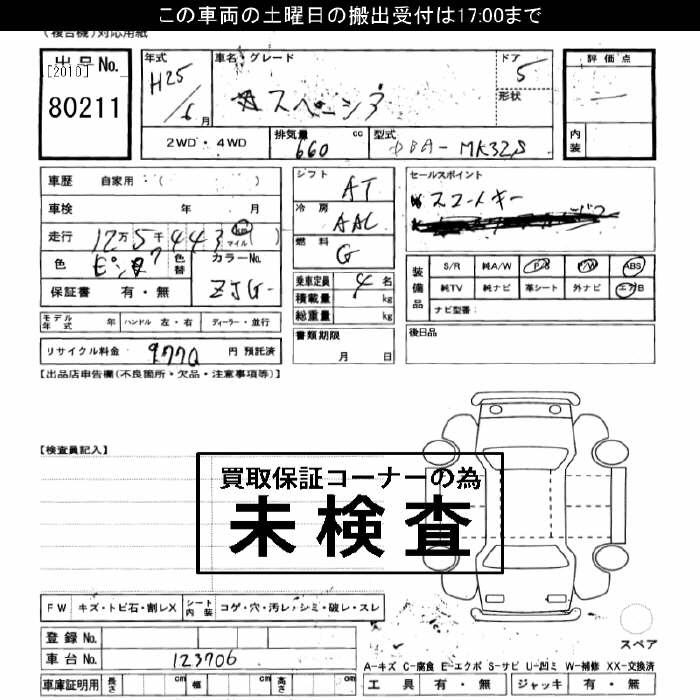 この車両の土曜日の搬出受付は17:00まで
(複合機)対応用紙
出品No.
[2010]
80211
年式
H25/6月
車名・グレード
スペーシア
ドア
5
形状
評価点
内装
2WD・4WD
排気量
660
cc
型式
DBA-MK32S
車歴 自家用・( )
車検 年 月
走行 12万5千443 km マイル ( )
色
色替
カラーNo.
ZJG-
保証書 有・無
モデル年式 年 ハンドル 左・右 ディーラー・並行
リサイクル料金 9770 円 預託済
シフト
AT
冷房
AAC
燃料
G
乗車定員 4 名
積載量 kg
総重量 kg
書類期限
月 日
セールスポイント
スマートキー
装備品
S/R 純A/W P/S P/W ABS
純TV 純ナビ 革シート 外ナビ エアB
ナビ型番:
後日品
[出品店申告欄(不良箇所・欠品・注意事項等)]
[検査員記入]
買取保証コーナーの為
未検査
FW キズ・トビ石・割レX シート内装 コゲ・穴・汚レ・シミ・破レ・スレ
登録No.
車台No. 123706
車庫証明用 長さ cm 幅 cm 高さ cm
スペア
A-キズ C-腐食 E-エクボ S-サビ U-凹ミ W-補修 XX-交換済
工具 有・無 ジャッキ 有・無